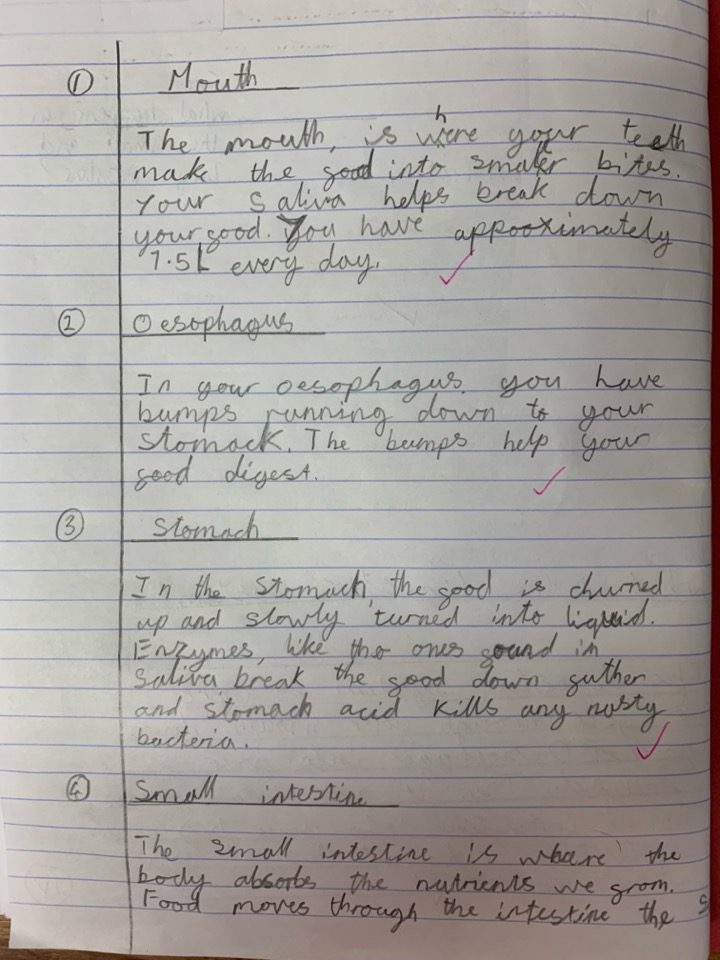 ① Mouth
The mouth, is where your teeth
make the food into smaller bites.
Your Saliva helps break down
your food. You have appooximately
7.5L every day.
② Oesophagus
In your oesophagus you have
bumps running down to your
stomack. The bumps help your
food digest.
③ Stomach
In the stomach, the food is churned
up and slowly turned into liquid.
Enzymes, like the ones found in
Saliva, break the food down futher
and stomach acid kills any nasty
bacteria.
④ Small intestine
The small intestine is where the
body absorbs the nutrients we from.
Food moves through the intestine the s